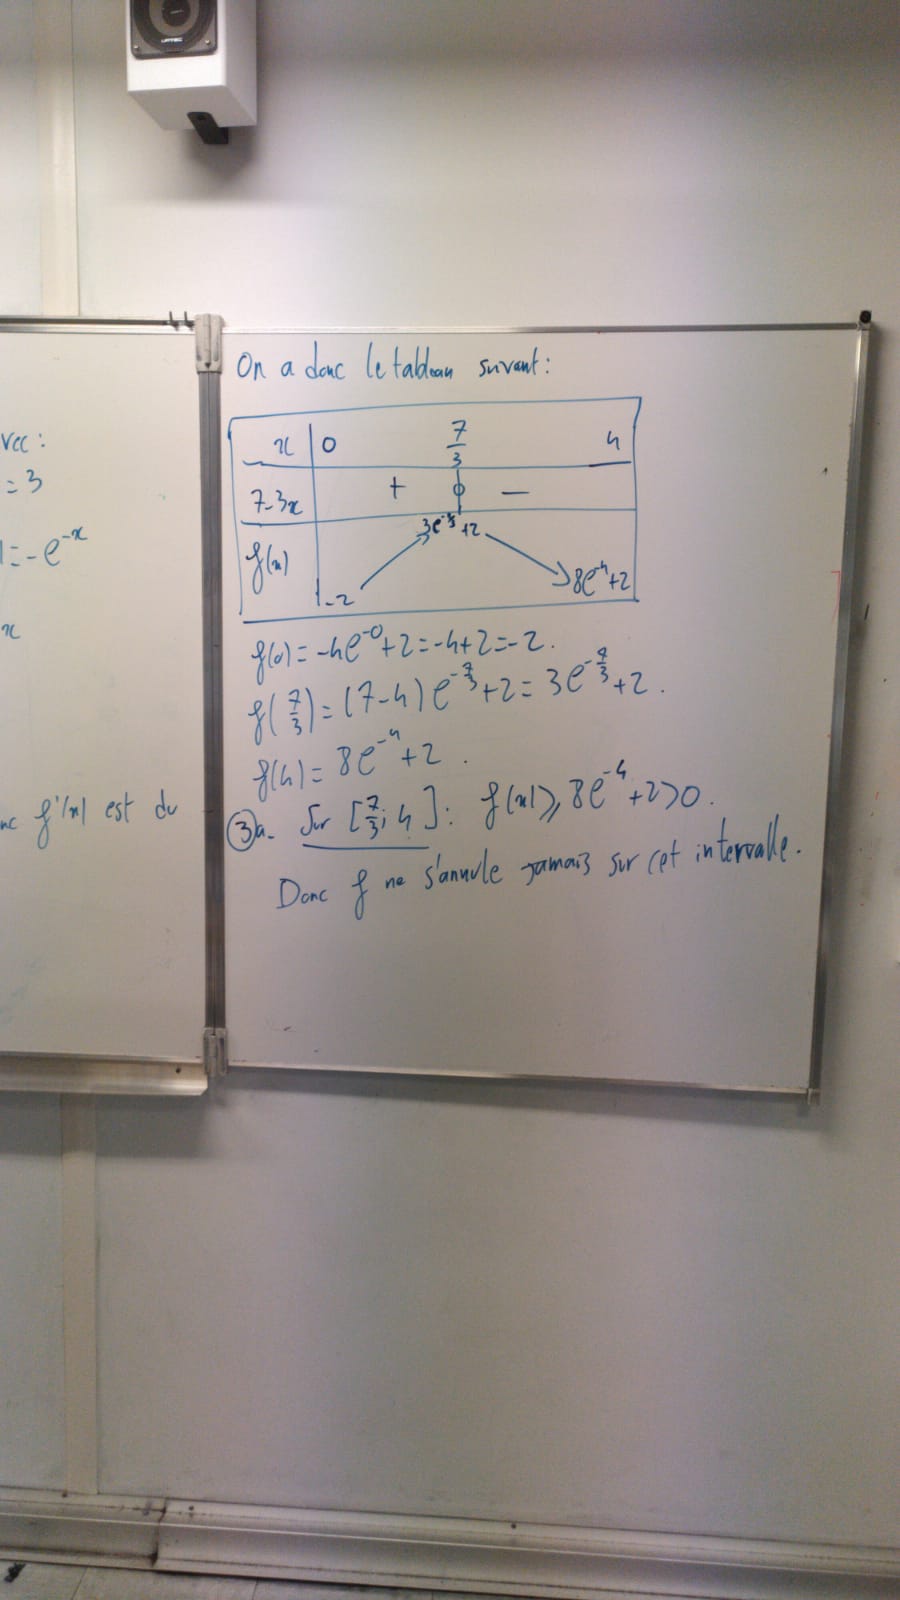 On a donc le tableau suivant :
vec :
= 3
1 = -e^{-x}
x
nc f'(x) est du
x | 0 7/3 4
7-3x | + 0 -
f(x) | -2 ↗ 3e^{-7/3}+2 ↘ 8e^{-4}+2
f(0) = -4e^{-0}+2 = -4+2 = -2.
f(7/3) = (7-4)e^{-7/3}+2 = 3e^{-7/3}+2.
f(4) = 8e^{-4}+2.
③a- Sur [7/3; 4] : f(x) ⩾ 8e^{-4}+2>0.
Donc f ne s'annule jamais sur cet intervalle.